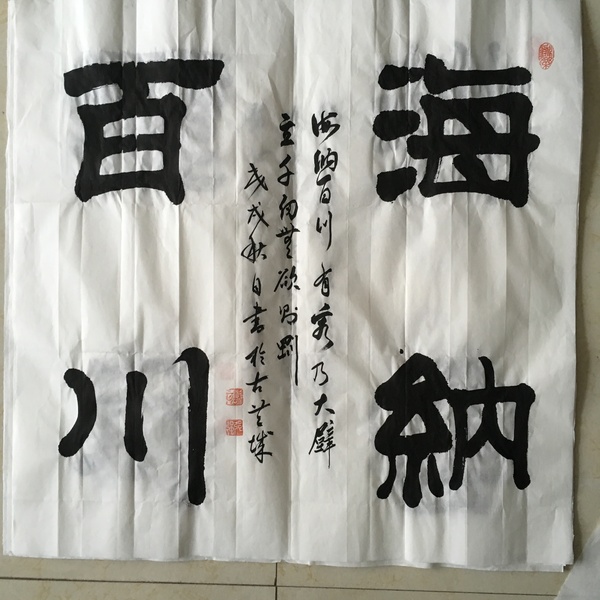 海納
海納百川有容乃大壁
立千仞無欲則剛
戊戌秋日書於古城
百川